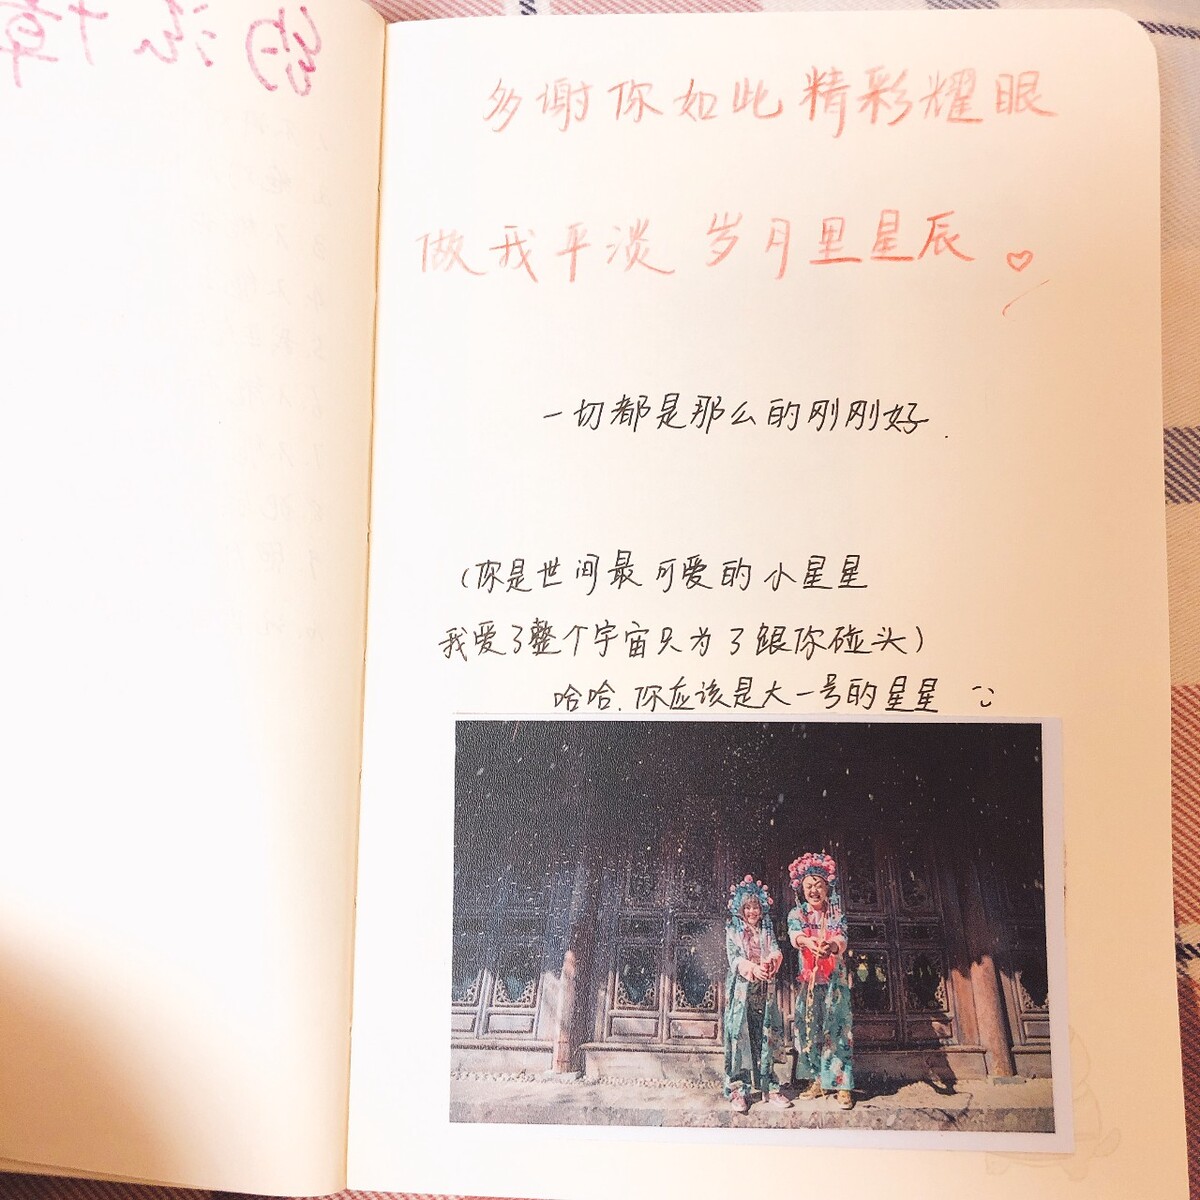 多谢你如此精彩耀眼
做我平淡 岁月里星辰
一切都是那么的刚刚好.
(你是世间最可爱的小星星
我爱了整个宇宙只为了跟你碰头)
哈哈.你应该是大一号的星星